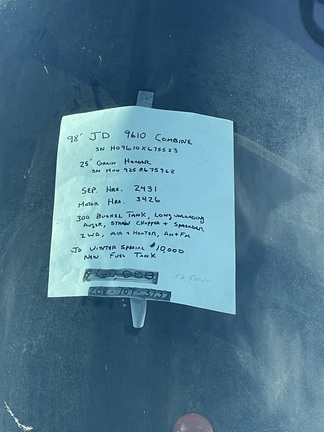 98' JD 9610 COMBINE
SN H09610X675523
25' GRAIN HEADER
SN H00 925
SEP. HRS. 2431
MOTOR HRS. 3426
300 BUSHEL TANK, LONG UNLOADING
AUGER, STRAW CHOPPER + SPREADER
2WD, AIR + HEATER, AM+FM
JD WINTER SPECIAL $10,000
NEW FUEL TANK